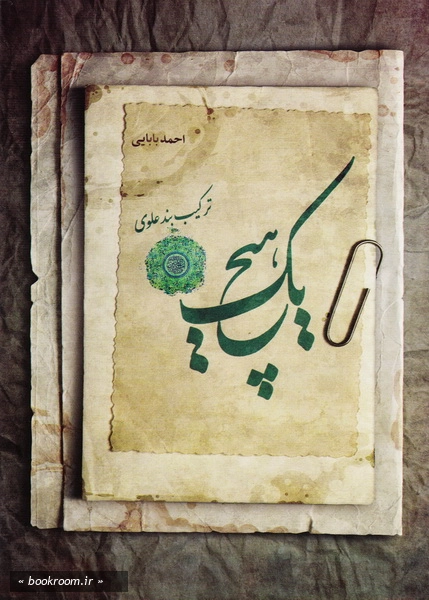 احمد بابایی
ترکیب بند علوی
هیچ
یک
« bookroom.ir »